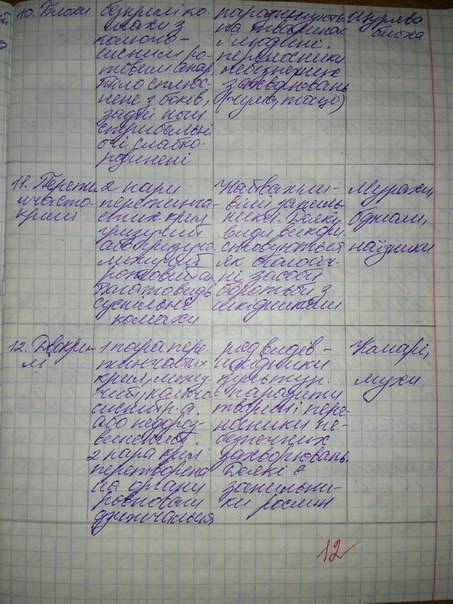 10. Блохи
безкрилі ко-
махи з
колюче-
сисним ро-
товим апар.
Тіло сплюс-
нене з боків,
задні ноги
стрибальні
очі слабко-
паразитують
на тваринах
і людині.
переносники
небезпечних
захворювань
(чума, тощо)
Щуряча
блоха
11. Перетин-
частокрилі
2 пари
перетинча-
стих крил
гризучий
або
ротовий ап.
багато видів
суспільні
комахи
Найважли-
віші запиль-
ники. Деякі
види викори-
стовуються
як біологіч-
ні засоби
боротьби з
шкідниками
Мурахи,
бджоли,
наїзники
12. Двокри-
лі
1 пара пере-
тинчастих
крил, лижу-
чий, колюче-
сисний р.а.
або
2 пара крил
перетворена
на органи
рівноваги
дзижчальця
ряд видів -
шкідники
культур.
паразити
тварин і пере-
носники не-
безпечних
захворювань.
Деякі є
запильни-
ки рослин
Комарі,
мухи
12